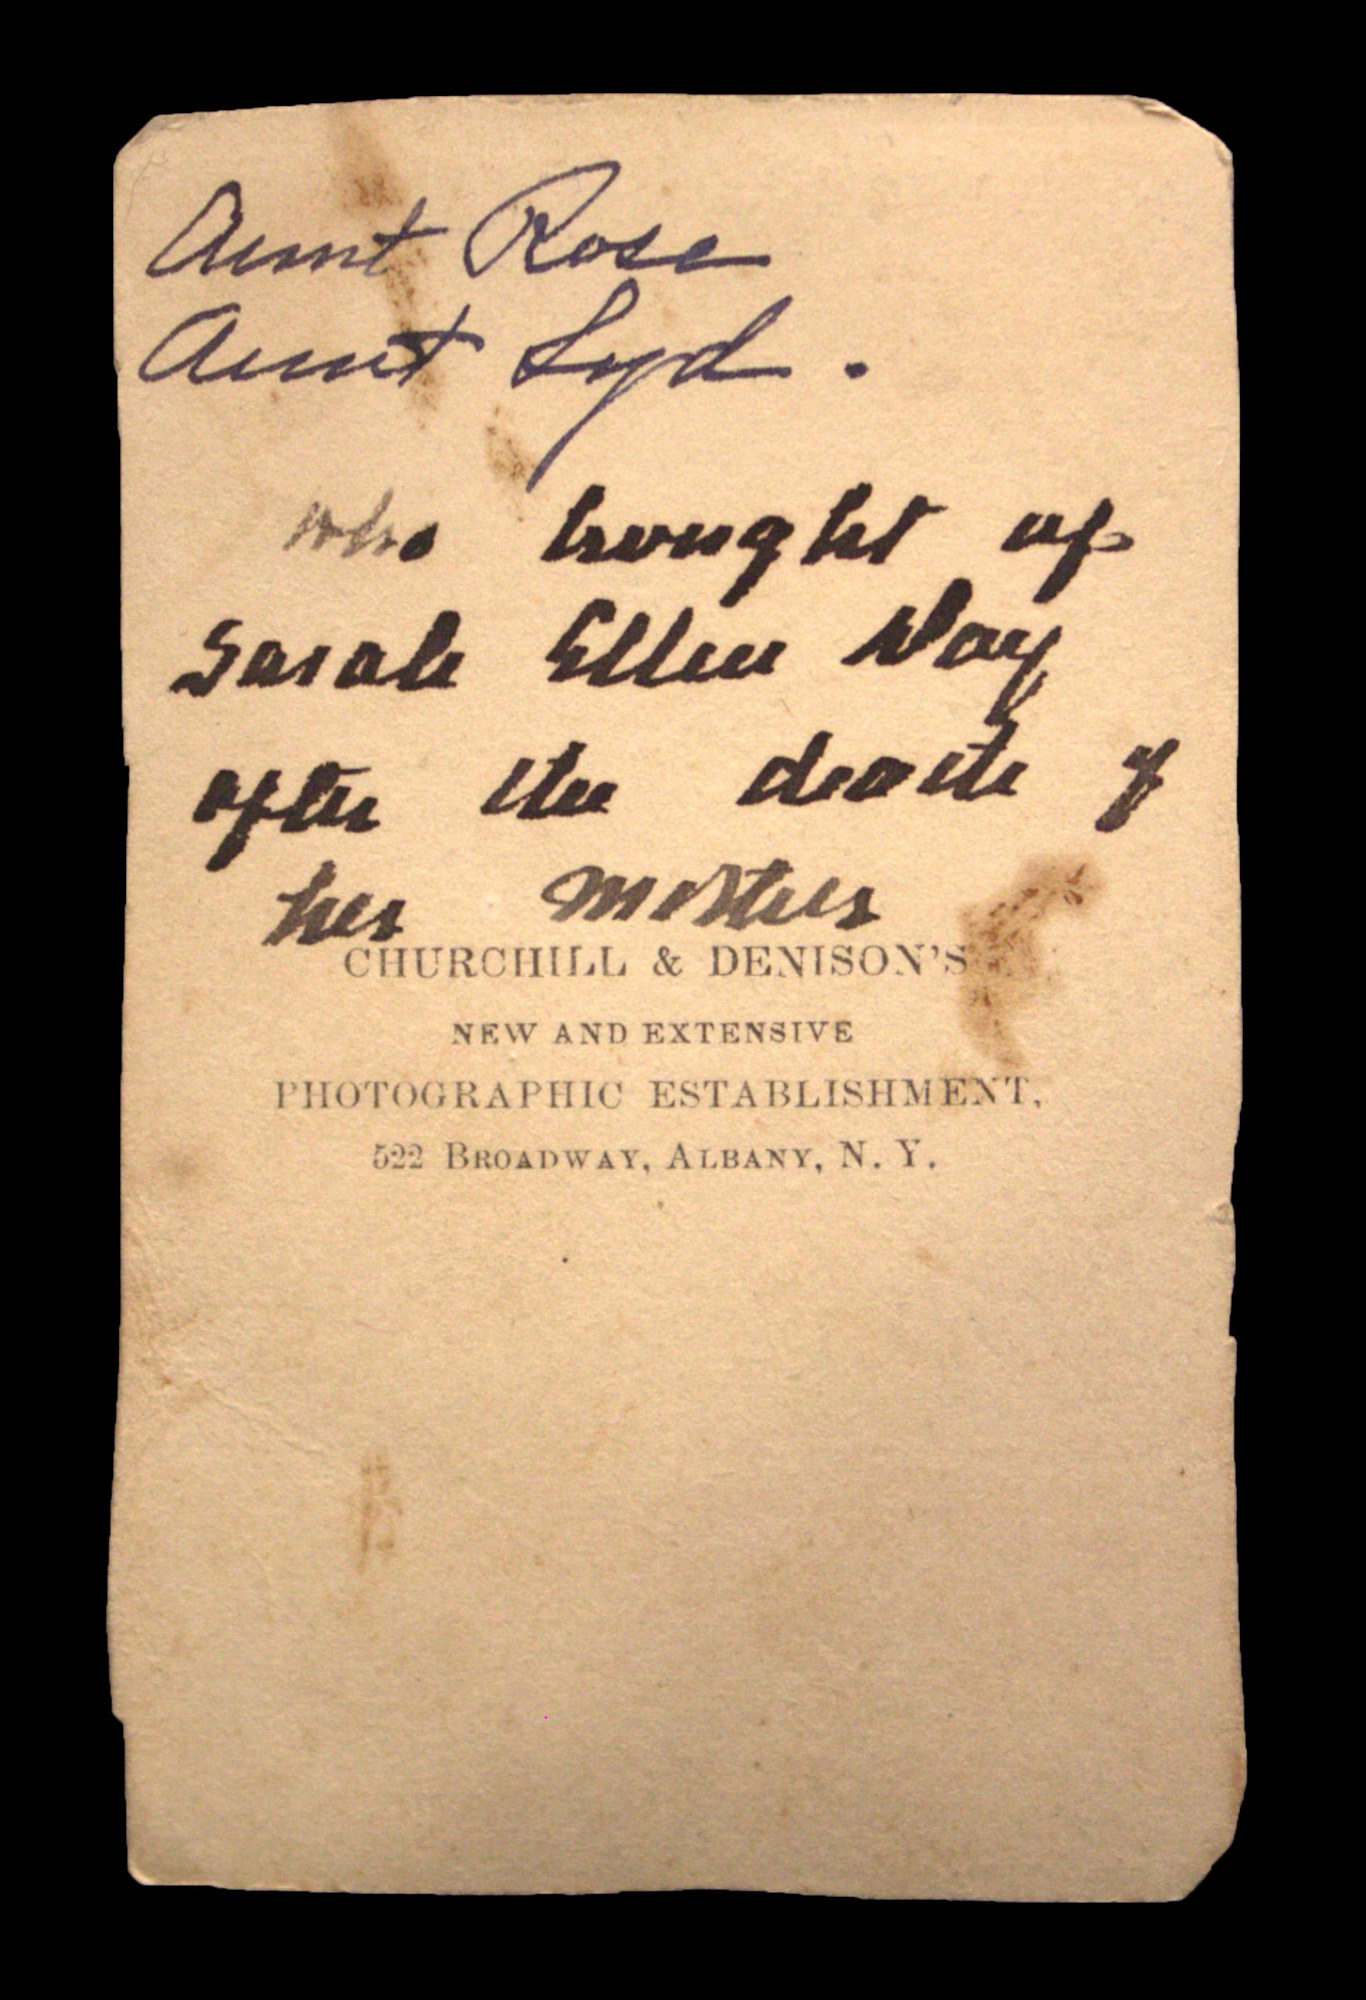 Aunt Rose
Aunt Lyd.
who brought up
Sarah Ellen Day
after the death of
her mother
CHURCHILL & DENISON'S
NEW AND EXTENSIVE
PHOTOGRAPHIC ESTABLISHMENT,
522 BROADWAY, ALBANY, N. Y.